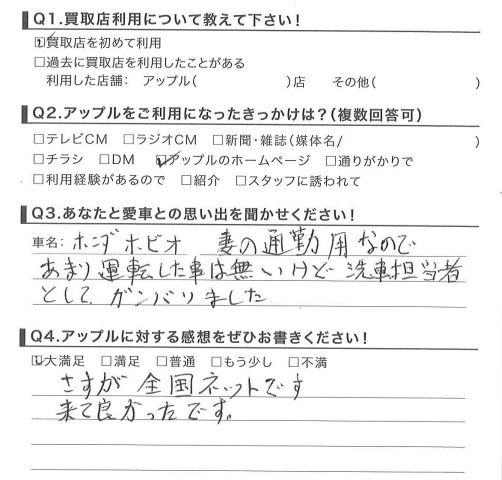 Q1.買取店利用について教えて下さい！
☑買取店を初めて利用
□過去に買取店を利用したことがある
利用した店舗： アップル（　　　　　　）店　その他（　　　　　　）
Q2.アップルをご利用になったきっかけは？（複数回答可）
□テレビCM □ラジオCM □新聞・雑誌（媒体名/　　　　　　）
□チラシ □DM ☑アップルのホームページ □通りがかりで
□利用経験があるので □紹介 □スタッフに誘われて
Q3.あなたと愛車との思い出を聞かせてください！
車名：ホンダ ホビオ 妻の通勤用なので
あまり運転した事は無いけど 洗車担当者
として ガンバリました
Q4.アップルに対する感想をぜひお書きください！
☑大満足 □満足 □普通 □もう少し □不満
さすが 全国ネットです
来て良かったです。